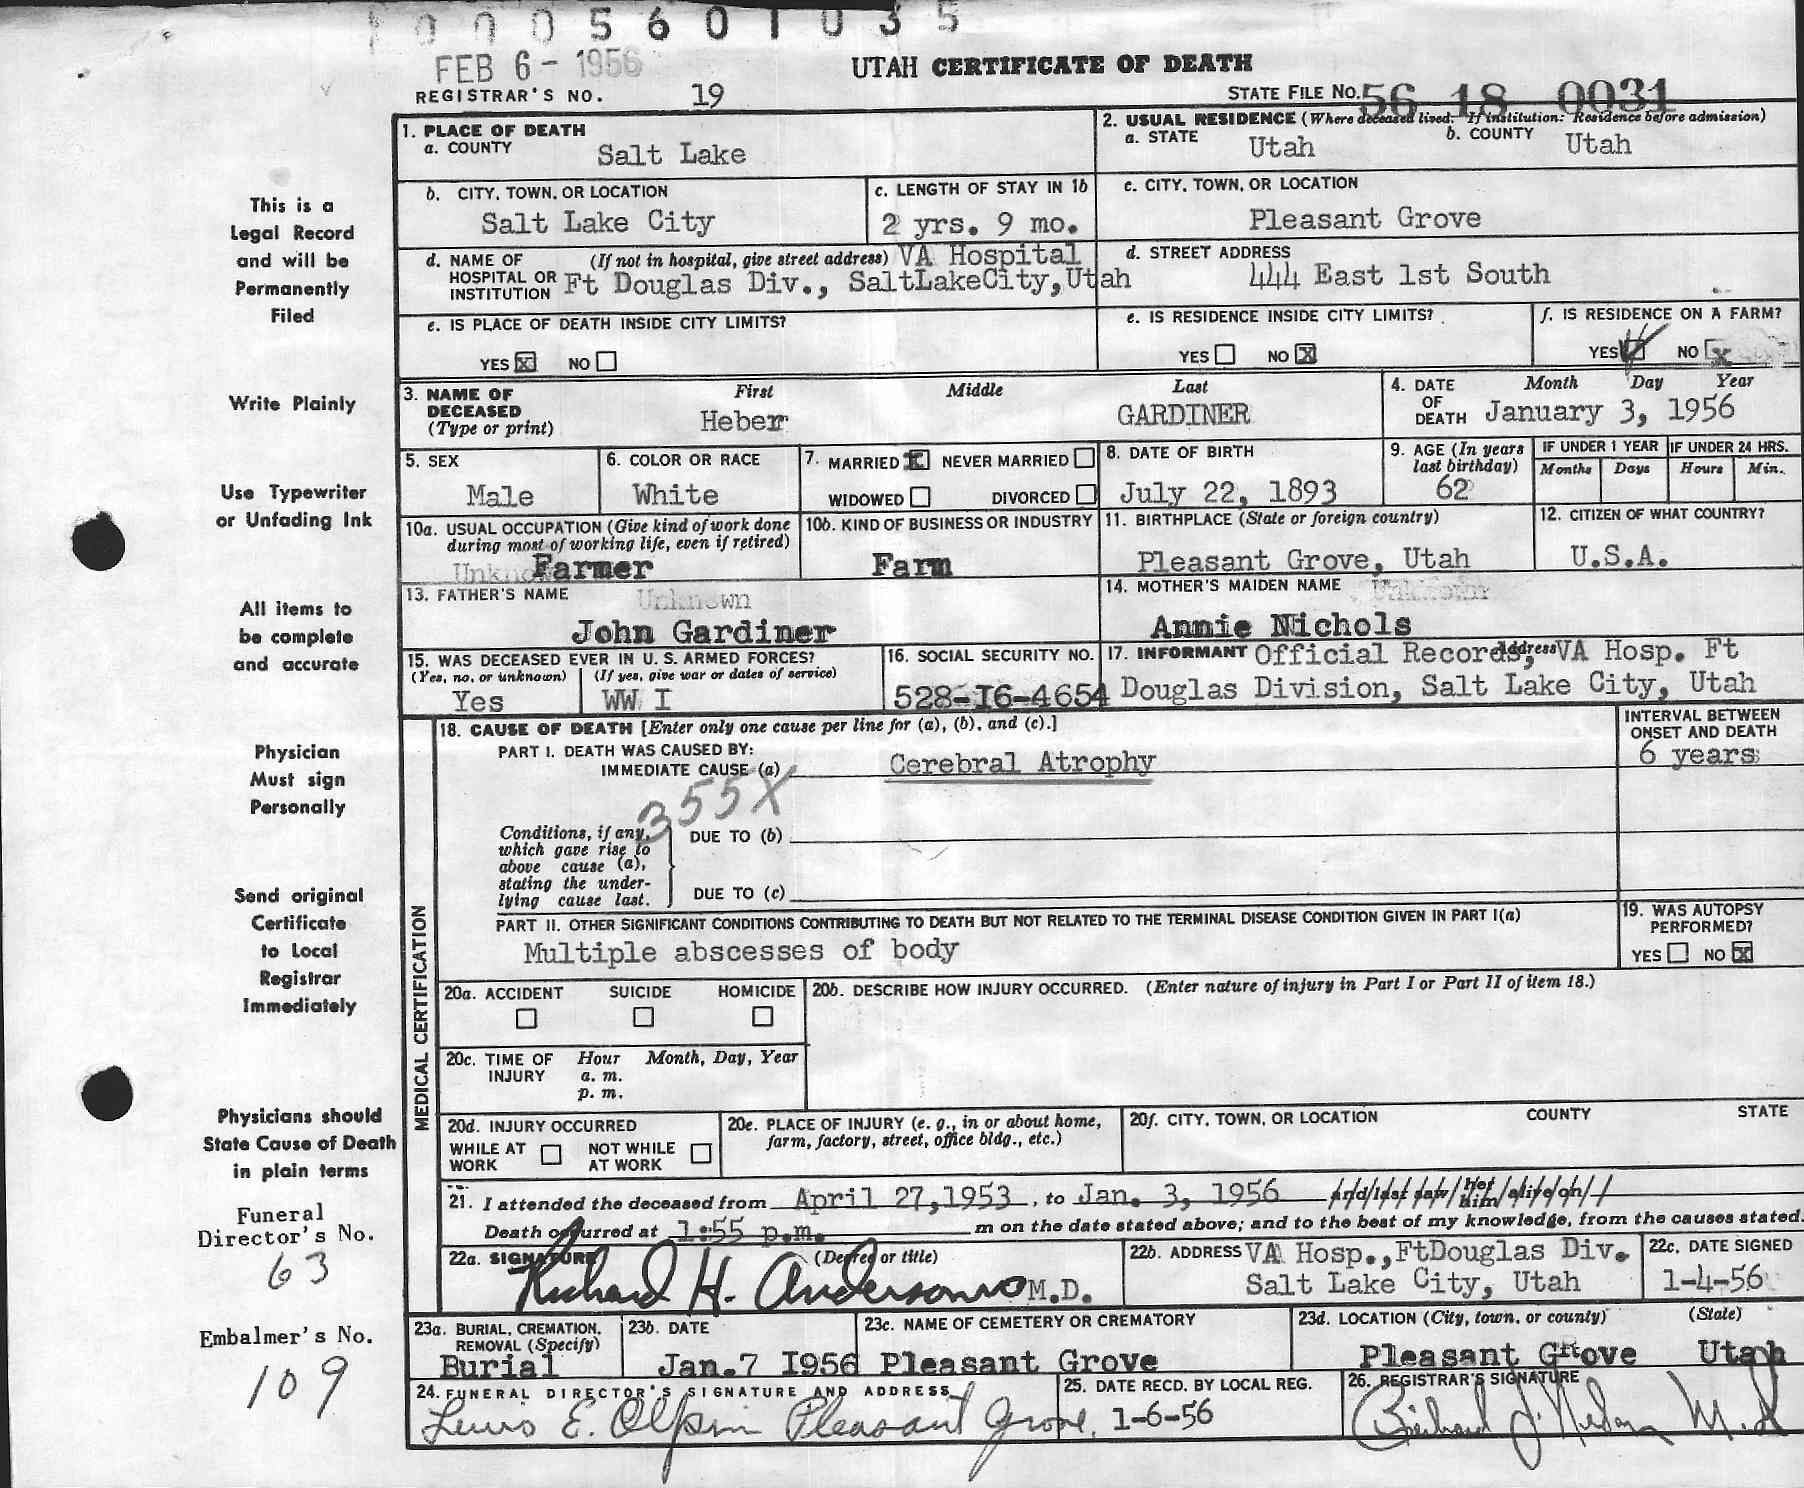 0005601035
FEB 6 - 1956
UTAH CERTIFICATE OF DEATH
REGISTRAR'S NO. 19
STATE FILE NO. 56 18 0031
This is a
Legal Record
and will be
Permanently
Filed
Write Plainly
Use Typewriter
or Unfading Ink
All items to
be complete
and accurate
Physician
Must sign
Personally
Send original
Certificate
to Local
Registrar
Immediately
Physicians should
State Cause of Death
in plain terms
Funeral
Director's No.
63
Embalmer's No.
109
1. PLACE OF DEATH
a. COUNTY Salt Lake
2. USUAL RESIDENCE (Where deceased lived. If institution: Residence before admission)
a. STATE Utah b. COUNTY Utah
b. CITY, TOWN, OR LOCATION
Salt Lake City
c. LENGTH OF STAY IN 1b
2 yrs. 9 mo.
c. CITY, TOWN, OR LOCATION
Pleasant Grove
d. NAME OF (If not in hospital, give street address) VA Hospital
HOSPITAL OR
INSTITUTION Ft Douglas Div., SaltLakeCity,Utah
d. STREET ADDRESS
444 East 1st South
e. IS PLACE OF DEATH INSIDE CITY LIMITS?
YES X NO
e. IS RESIDENCE INSIDE CITY LIMITS?
YES NO X
f. IS RESIDENCE ON A FARM?
YES ✓ NO X
3. NAME OF
DECEASED
(Type or print)
First Middle Last
Heber GARDINER
4. DATE
OF
DEATH
Month Day Year
January 3, 1956
5. SEX
Male
6. COLOR OR RACE
White
7. MARRIED X NEVER MARRIED
WIDOWED DIVORCED
8. DATE OF BIRTH
July 22, 1893
9. AGE (In years
last birthday)
62
IF UNDER 1 YEAR
Months Days
IF UNDER 24 HRS.
Hours Min.
10a. USUAL OCCUPATION (Give kind of work done
during most of working life, even if retired)
Farmer
10b. KIND OF BUSINESS OR INDUSTRY
Farm
11. BIRTHPLACE (State or foreign country)
Pleasant Grove, Utah
12. CITIZEN OF WHAT COUNTRY?
U.S.A.
13. FATHER'S NAME Unknown
John Gardiner
14. MOTHER'S MAIDEN NAME Unknown
Annie Nichols
15. WAS DECEASED EVER IN U. S. ARMED FORCES?
(Yes, no, or unknown) (If yes, give war or dates of service)
Yes WW I
16. SOCIAL SECURITY NO.
528-I6-4654
17. INFORMANT Official Records, Address VA Hosp. Ft
Douglas Division, Salt Lake City, Utah
MEDICAL CERTIFICATION
18. CAUSE OF DEATH [Enter only one cause per line for (a), (b), and (c).]
PART I. DEATH WAS CAUSED BY:
IMMEDIATE CAUSE (a) Cerebral Atrophy
INTERVAL BETWEEN
ONSET AND DEATH
6 years
355X
Conditions, if any,
which gave rise to
above cause (a),
stating the under-
lying cause last.
DUE TO (b)
DUE TO (c)
PART II. OTHER SIGNIFICANT CONDITIONS CONTRIBUTING TO DEATH BUT NOT RELATED TO THE TERMINAL DISEASE CONDITION GIVEN IN PART I(a)
Multiple abscesses of body
19. WAS AUTOPSY
PERFORMED?
YES NO X
20a. ACCIDENT SUICIDE HOMICIDE
20b. DESCRIBE HOW INJURY OCCURRED. (Enter nature of injury in Part I or Part II of item 18.)
20c. TIME OF
INJURY
Hour Month, Day, Year
a. m.
p. m.
20d. INJURY OCCURRED
WHILE AT
WORK
NOT WHILE
AT WORK
20e. PLACE OF INJURY (e. g., in or about home,
farm, factory, street, office bldg., etc.)
20f. CITY, TOWN, OR LOCATION COUNTY STATE
21. I attended the deceased from April 27,1953, to Jan. 3, 1956 and last saw her him alive on
Death occurred at 1:55 p.m. m on the date stated above; and to the best of my knowledge, from the causes stated.
22a. SIGNATURE (Degree or title)
Richard H. Anderson M.D.
22b. ADDRESS VA Hosp.,FtDouglas Div.
Salt Lake City, Utah
22c. DATE SIGNED
1-4-56
23a. BURIAL, CREMATION,
REMOVAL (Specify)
Burial
23b. DATE
Jan.7 I956
23c. NAME OF CEMETERY OR CREMATORY
Pleasant Grove
23d. LOCATION (City, town, or county) (State)
Pleasant Grove Utah
24. FUNERAL DIRECTOR'S SIGNATURE AND ADDRESS
Lewis E. Olpin Pleasant Grove,
25. DATE RECD. BY LOCAL REG.
1-6-56
26. REGISTRAR'S SIGNATURE